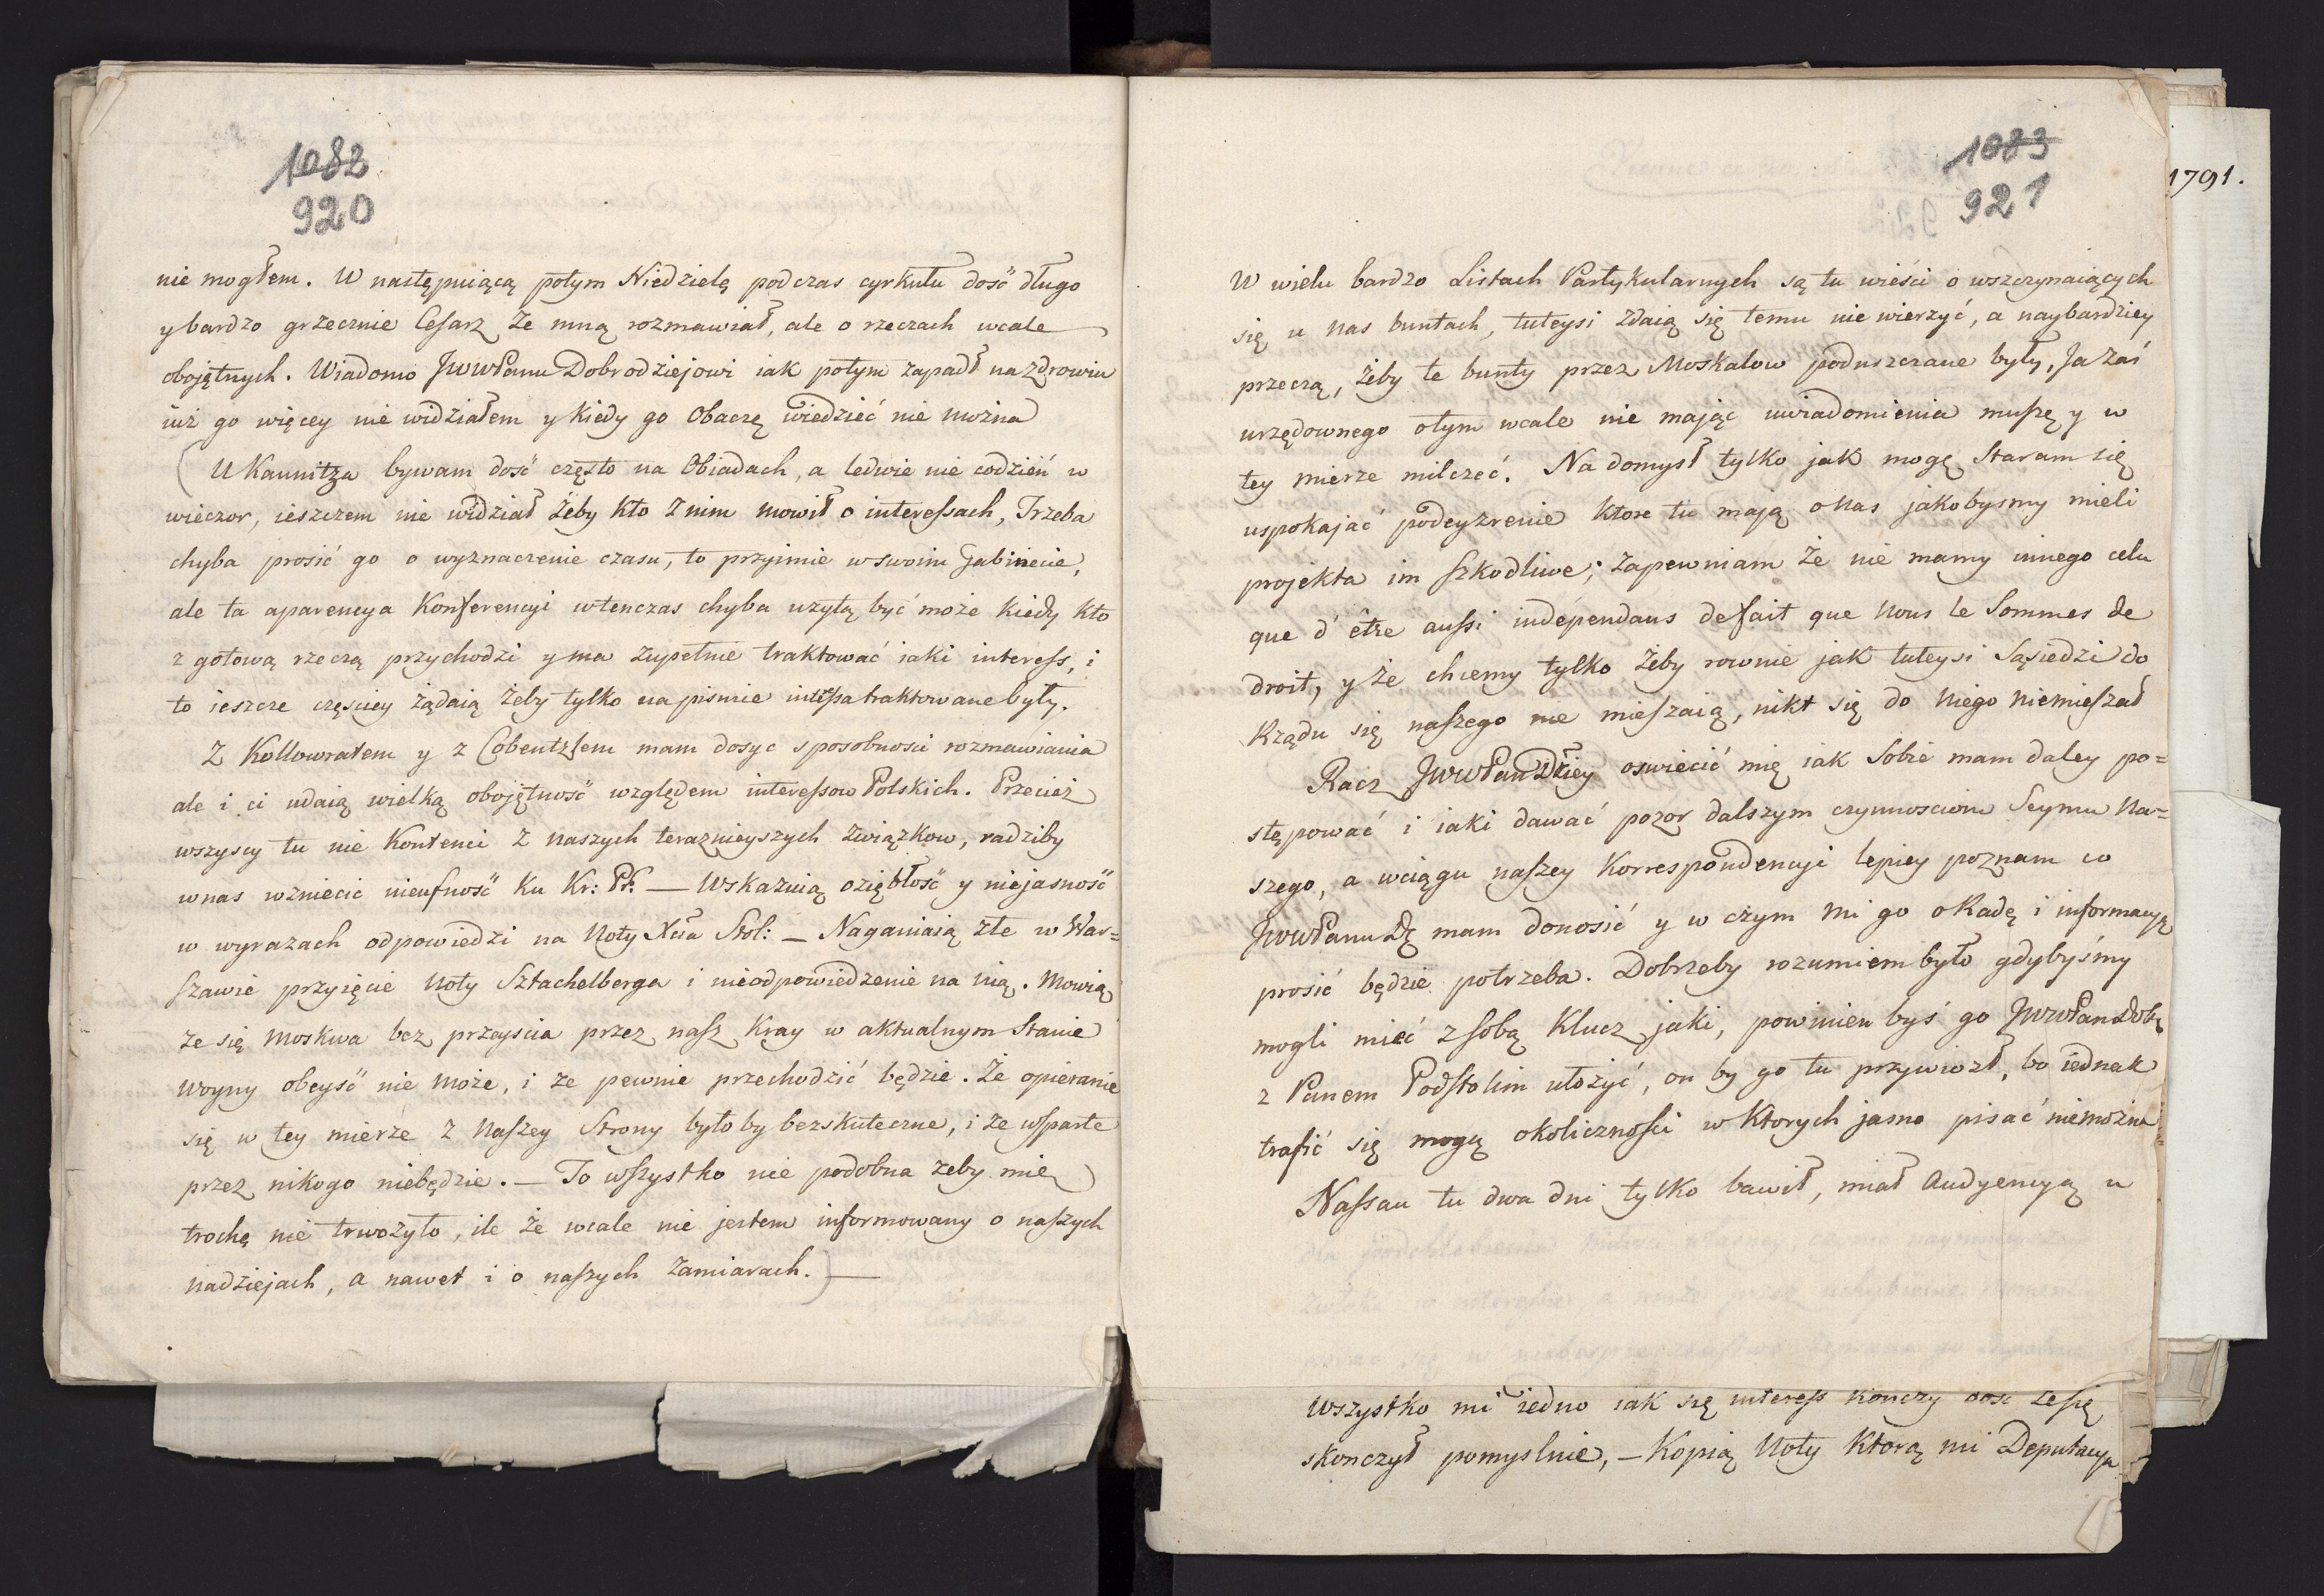 1082
920
nie mogłem. W następuiącą potym Niedzielę podczas cyrkułu dość długo
y bardzo grzecznie Cesarz ze mną rozmawiał, ale o rzeczach wcale
obojętnych. Wiadomo JWWPanu Dobrodziejowi iak potym zapadł na zdrowiu
iuż go więcey nie widziałem y kiedy go obaczę wiedzieć nie można
(U Kaunitza bywam dość często na Obiadach, a ledwie nie codzień w
wieczor, ieszczem nie widział żeby kto z nim mowił o interessach, Trzeba
chyba prosić go o wyznaczenie czasu, to przyimie w swoim Gabinecie,
ale ta aparencya Konferencyi wtenczas chyba użytą być może kiedy kto
z gotową rzeczą przychodzi y ma zupełnie traktować iaki interess, i
to ieszcze częsciey żądaią żeby tylko na pismie intssa traktowane były.
Z Kollowratem y z Cobentzlem mam dosyc sposobnosci rozmawiania
ale i ci udaią wielką obojętność względem interessow Polskich. Przecież
wszyscy tu nie kontenci z naszych teraznieyszych związkow, radziby
w nas wzniecić nieufność ku Kr: Pr. — Wskazuią oziębłość y niejasność
w wyrazach odpowiedzi na Noty Xcia Stol: — Naganiaią złe w War=
szawie przyięcie Noty Sztachelberga i nieodpowiedzenie na nią. Mowią
ze się Moskwa bez przeyscia przez nasz Kray w aktualnym Stanie
Woyny obeyść nie może, i ze pewnie przechodzić będzie. Że opieranie
się w tey mierze z Naszey Strony byłoby bezskuteczne, i że wsparte
przez nikogo niebędzie. — To wszystko nie podobna zeby mię
trochę nie trwożyło, ile że wcale nie jestem informowany o naszych
nadziejach, a nawet i o naszych zamiarach.) —
1083
921
1791.
W wielu bardzo Listach Partykularnych są tu wieści o wszczynaiących
się u nas buntach, tuteysi zdaią się temu nie wierzyć, a naybardziey
przeczą, żeby te bunty przez Moskalow poduszczane były, Ja zaś
urzędownego o tym wcale nie mając uwiadomienia muszę y w
tey mierze milczeć. Na domysł tylko jak mogę Staram się
uspokajać podeyzrenie ktore tu mają o Nas jakobysmy mieli
projekta im szkodliwe; zapewniam że nie mamy innego celu
que d'être aussi indépendans de fait que Nous le Sommes de
droit, y że chcemy tylko żeby rownie jak tuteysi Sąsiedzi do
Rządu się naszego nie mieszaią, nikt się do Niego niemieszał
Racz JWWPan Dziey oswiecić mię iak Sobie mam daley po=
stępować i iaki dawać pozor dalszym czynnosciom Seymu Na=
szego, a wciągu naszey Korrespondencyi lepiey poznam co
JWWPanu Dź mam donosić y w czym mi go o Radę i informacyą
prosić będzie potrzeba. Dobrzeby rozumiem było gdybyśmy
mogli mieć z sobą Klucz jaki, powinien byś go JWWPan Dobź
z Panem Podstolim ułożyć, on by go tu przywiozł, bo iednak
trafić się mogą okoliczności w ktorych jasno pisać niemożna
Nassau tu dwa dni tylko bawił, miał Audyencyą u
Wszystko mi iedno iak się interess konczy dosc ze się
skonczył pomyslnie, — Kopią Noty ktorą mi Deputacya